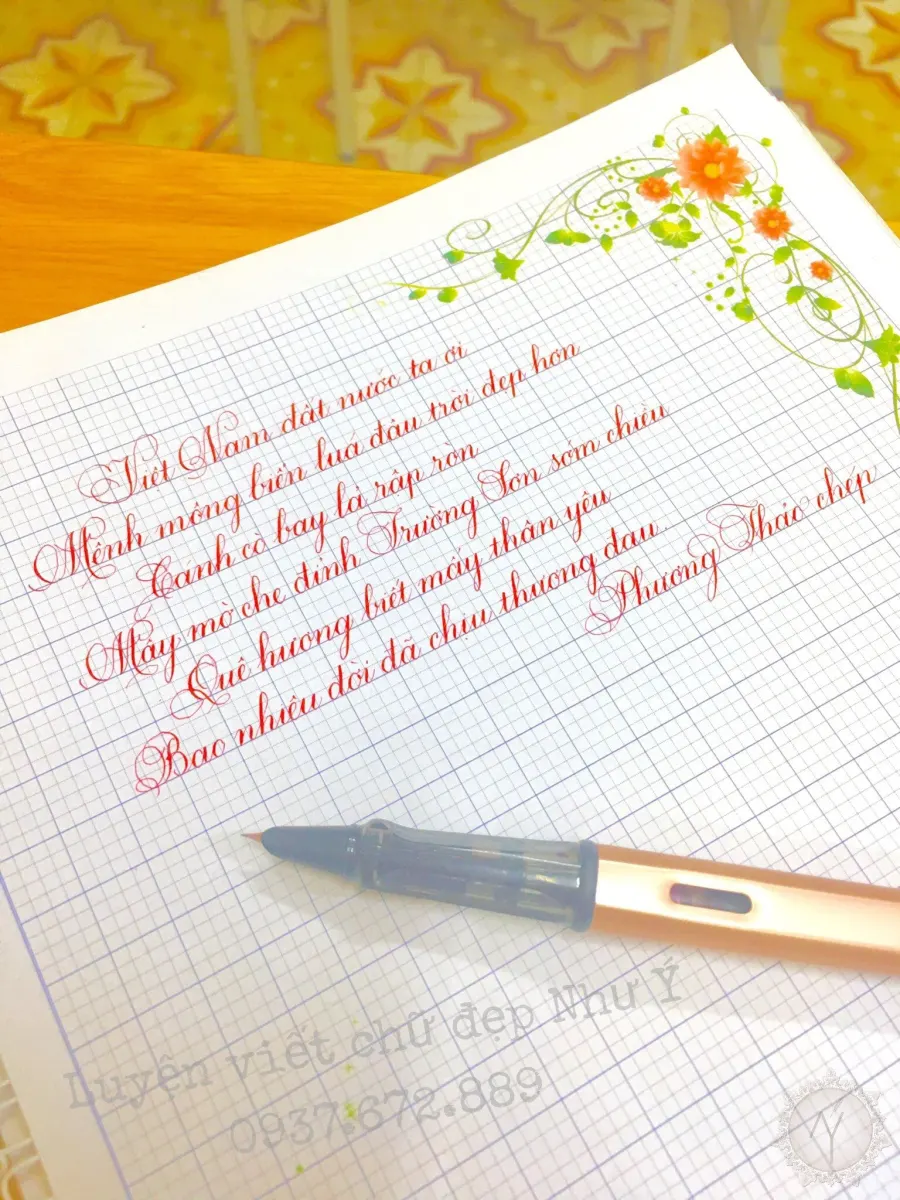 Việt Nam đất nước ta ơi
Mênh mông biển luá đâu trời đẹp hơn
Cánh cò bay lả rập rờn
Mây mờ che đỉnh Trường Sơn sớm chiều
Quê hương biết mấy thân yêu
Bao nhiêu đời đã chịu thương đau
Phương Thảo chép
Luyện viết chữ đẹp Như Ý
0937.672.889
NÝ